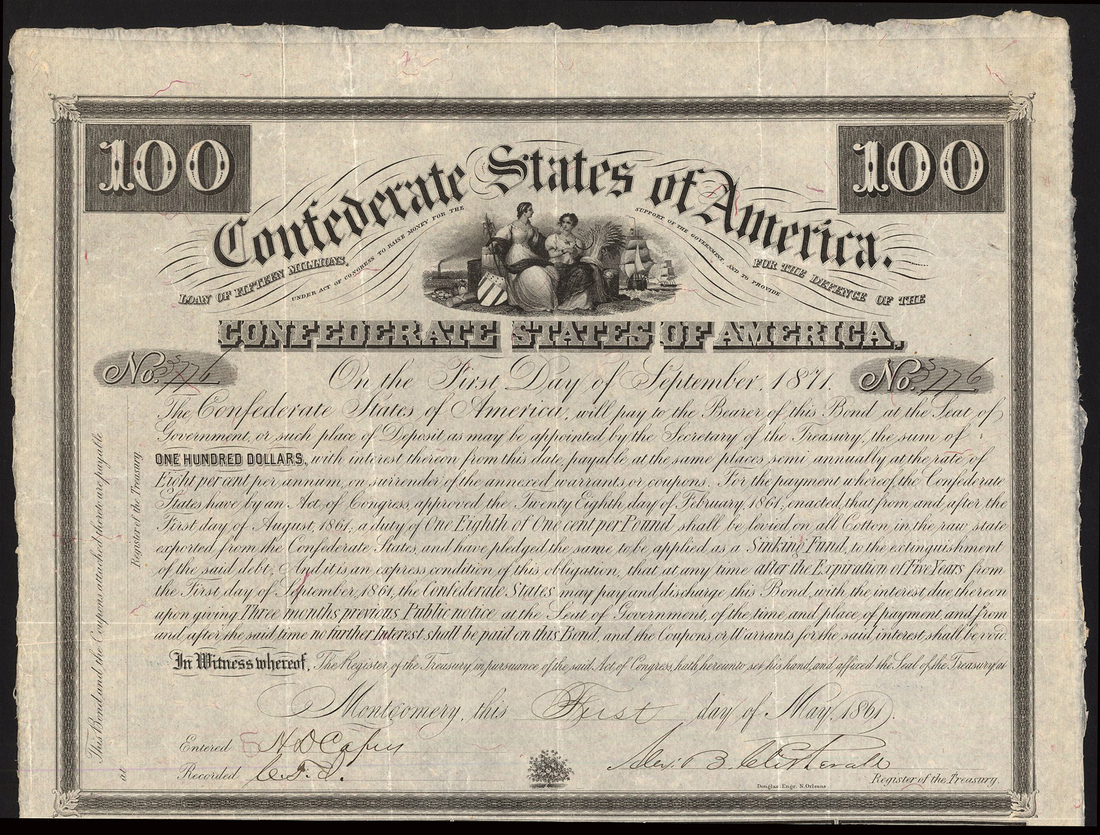 100
100
Confederate States of America.
LOAN OF FIFTEEN MILLIONS,
UNDER ACT OF CONGRESS TO RAISE MONEY FOR THE
SUPPORT OF THE GOVERNMENT, AND TO PROVIDE
FOR THE DEFENCE OF THE
CONFEDERATE STATES OF AMERICA,
No. 3776
No. 3776
On the First Day of September, 1871.
The Confederate States of America, will pay to the Bearer of this Bond at the Seat of
Government, or such place of Deposit as may be appointed by the Secretary of the Treasury, the sum of
ONE HUNDRED DOLLARS, with interest thereon from this date, payable at the same places semi annually at the rate of
Eight per cent per annum, on surrender of the annexed warrants or coupons. For the payment whereof the Confederate
States have by an Act of Congress, approved the Twenty Eighth day of February, 1861, enacted, that from and after the
First day of August, 1861, a duty of One Eighth of One cent per Pound shall be levied on all Cotton in the raw state
exported from the Confederate States, and have pledged the same to be applied as a Sinking Fund, to the extinguishment
of the said debt. And it is an express condition of this obligation, that at any time after the Expiration of Five Years from
the First day of September, 1861, the Confederate States may pay and discharge this Bond, with the interest due thereon
upon giving Three months previous Public notice at the Seat of Government, of the time and place of payment, and from
and after the said time no further Interest shall be paid on this Bond, and the Coupons or Warrants for the said interest shall be void.
In Witness whereof, The Register of the Treasury, in pursuance of the said Act of Congress, hath hereunto set his hand, and affixed the Seal of the Treasury at
Montgomery, this First day of May, 1861.
Entered H D Capers
Recorded C. T. J.
Register of the Treasury.
Douglas Engr. N. Orleans
This Bond, and the Coupons attached thereto are payable
at
Register of the Treasury